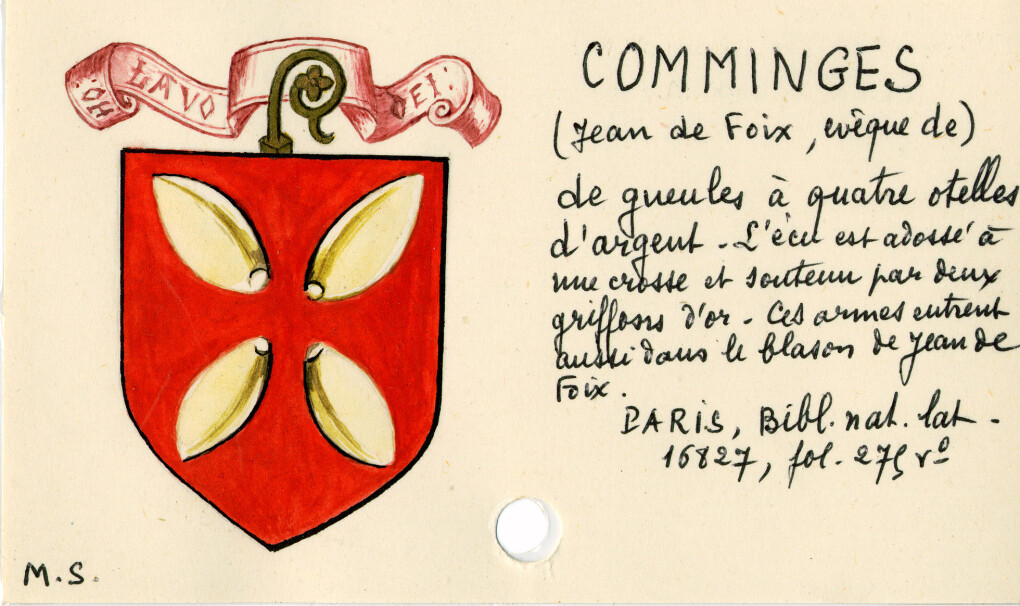 ·OH LAVO DEI·
COMMINGES
(Jean de Foix, evêque de)
de gueules à quatre otelles
d'argent - L'écu est adossé à
une crosse et soutenu par deux
griffons d'or - Ces armes entrent
aussi dans le blason de Jean de
Foix.
PARIS, Bibl. nat. lat -
16827, fol. 275 vº
M.S.